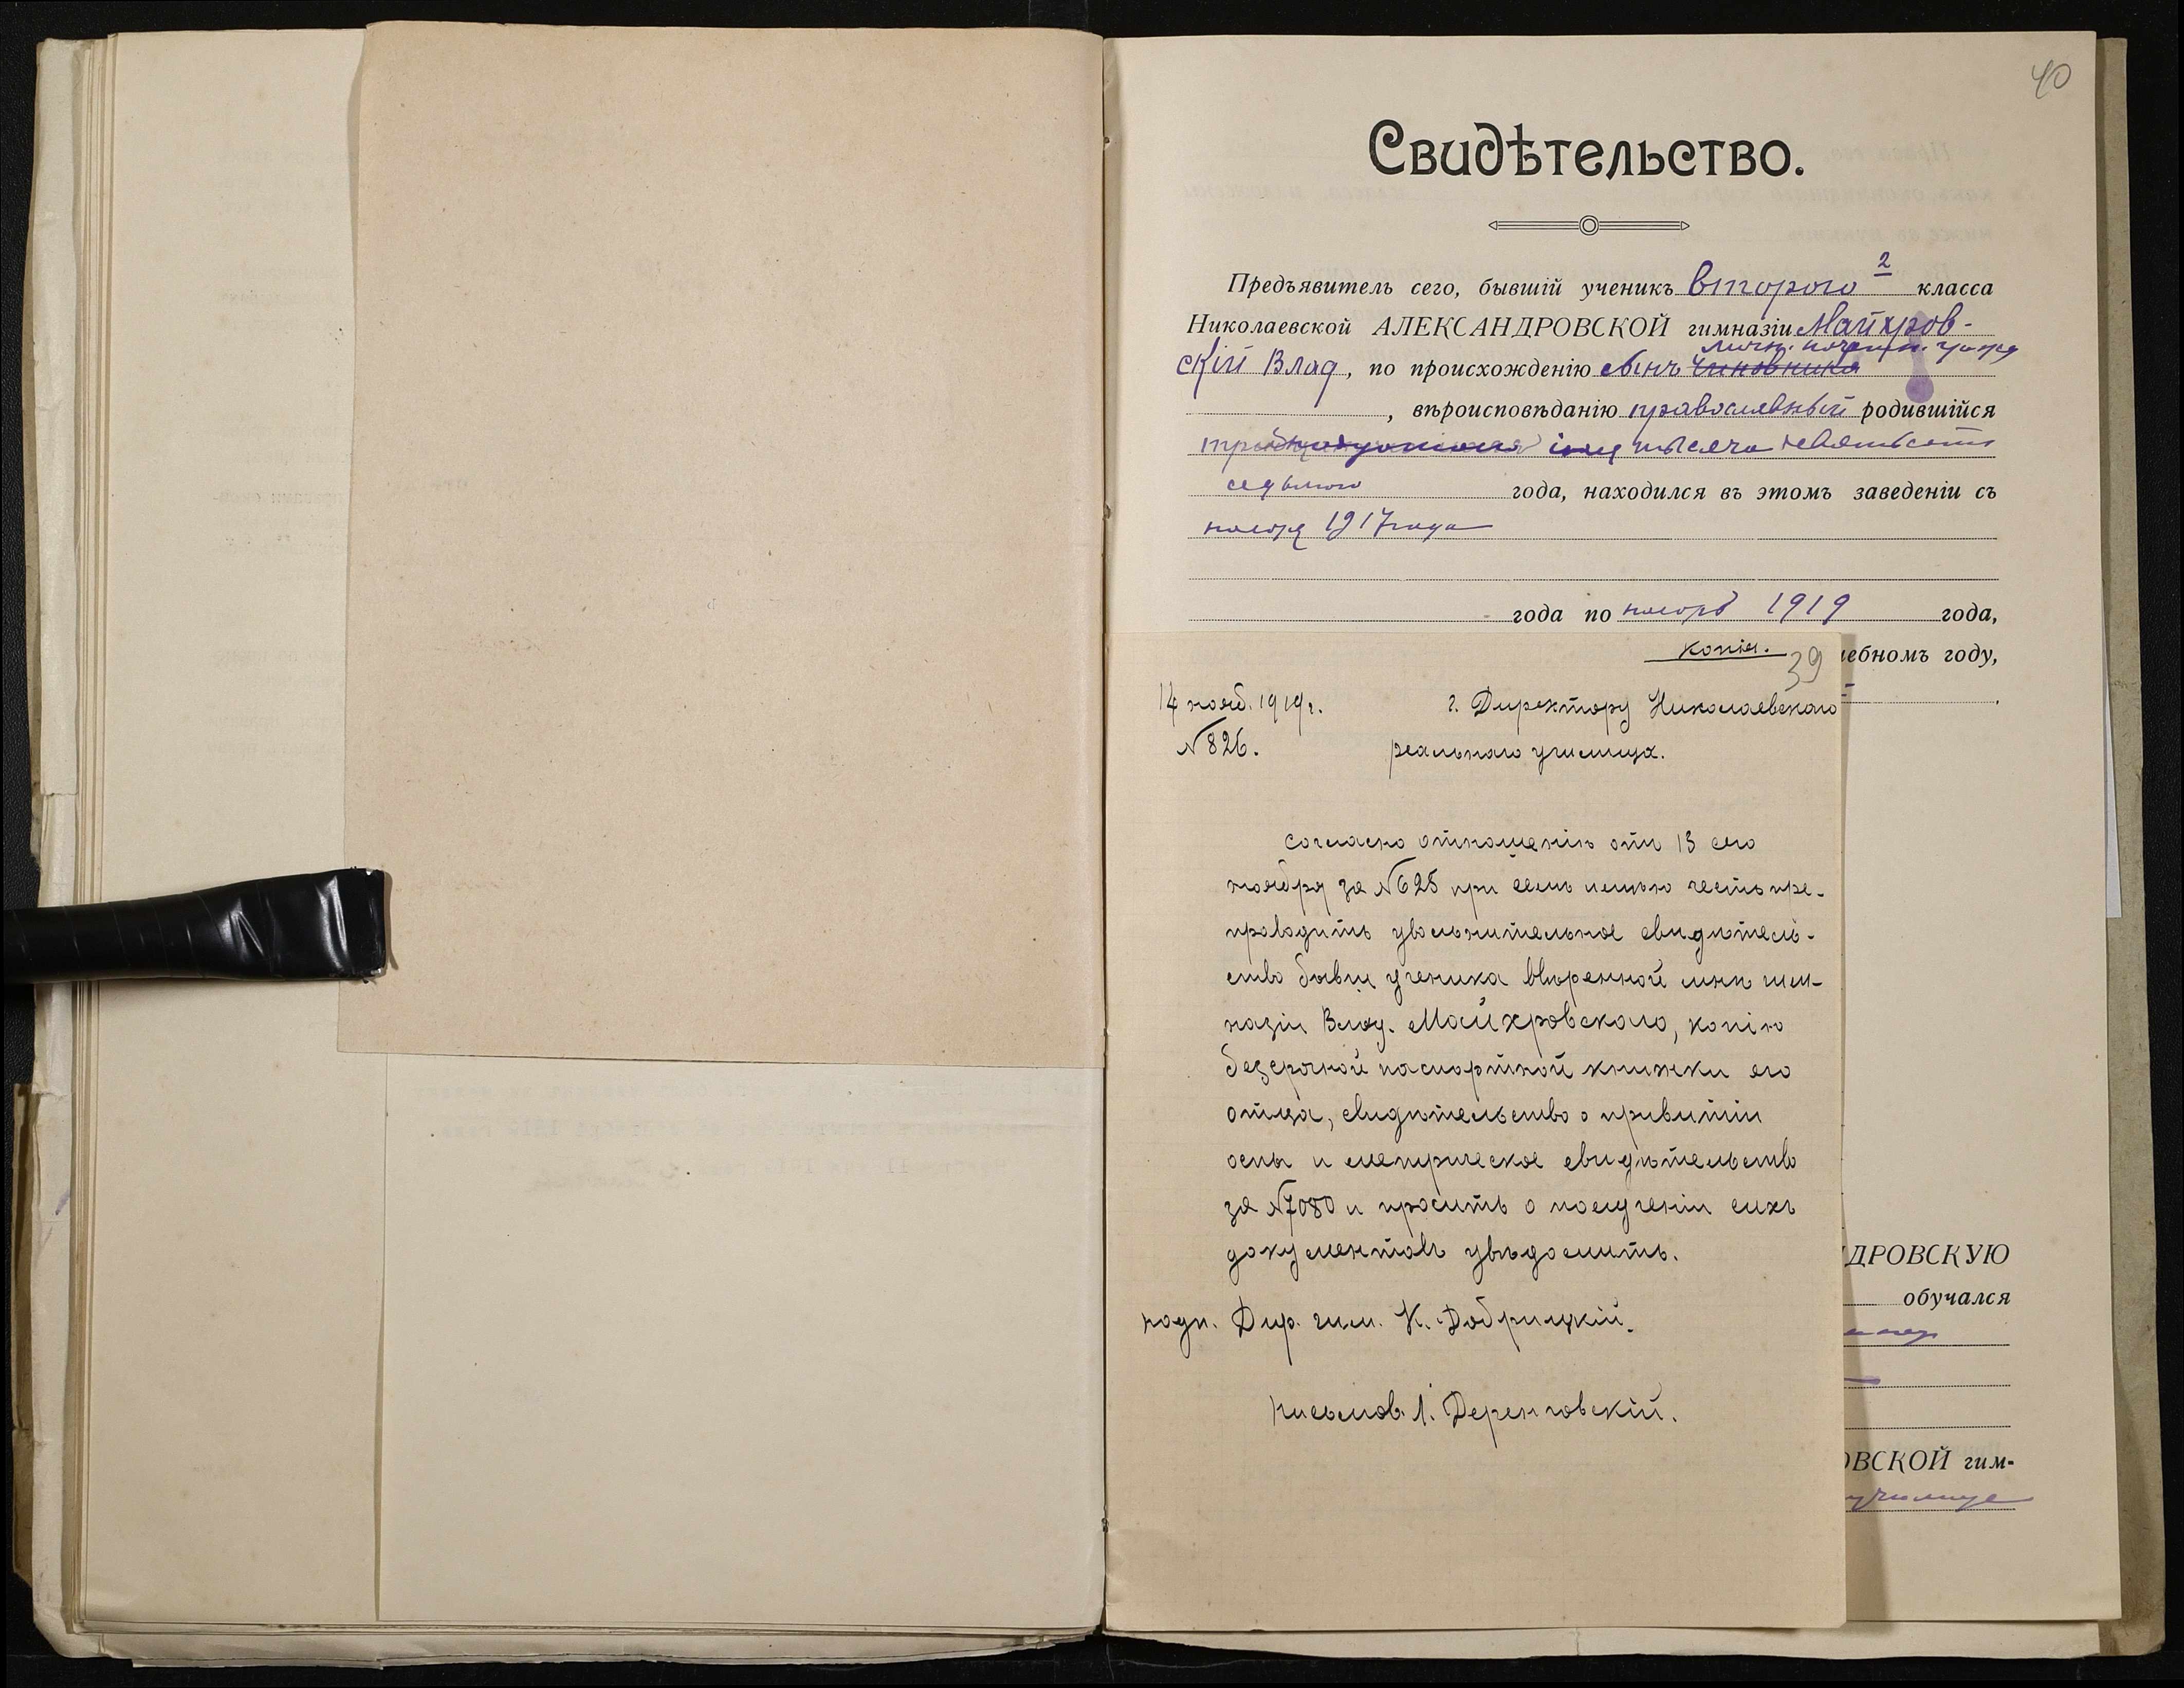 40
Свидѣтельство.
Предъявитель сего, бывшій ученикъ второго 2 класса
Николаевской АЛЕКСАНДРОВСКОЙ гимназіи Майхров-
скій Влад, по происхожденію сынъ чиновника личн. почетн.
, вѣроисповѣданію православный родившійся
тысяча девятьсотъ
седьмого года, находился въ этомъ заведеніи съ
ноября 1917 года
года по ноябрь 1919 года,
копія. 39 чебномъ году,
14 нояб. 1919 г. г. Директору Николаевскаго
№ 826. реальнаго училища.
Согласно отношенію отъ 13 сего
ноября за № 625 при семъ имѣю честь пре-
проводить увольнительное свидѣтель-
ство бывш ученика ввѣренной мнѣ гим-
назіи Влад. Майхровскаго, копію
безсрочной паспортной книжки его
отца, свидѣтельство о привитіи
оспы и метрическое свидѣтельство
за № 7080 и просить о полученіи сихъ
документовъ увѣдомить.
ДРОВСКУЮ
обучался
подп. Дир. гим. К. Добрицкій.
Письмов. Л. Деренговскій.
ОВСКОЙ гим-
училище